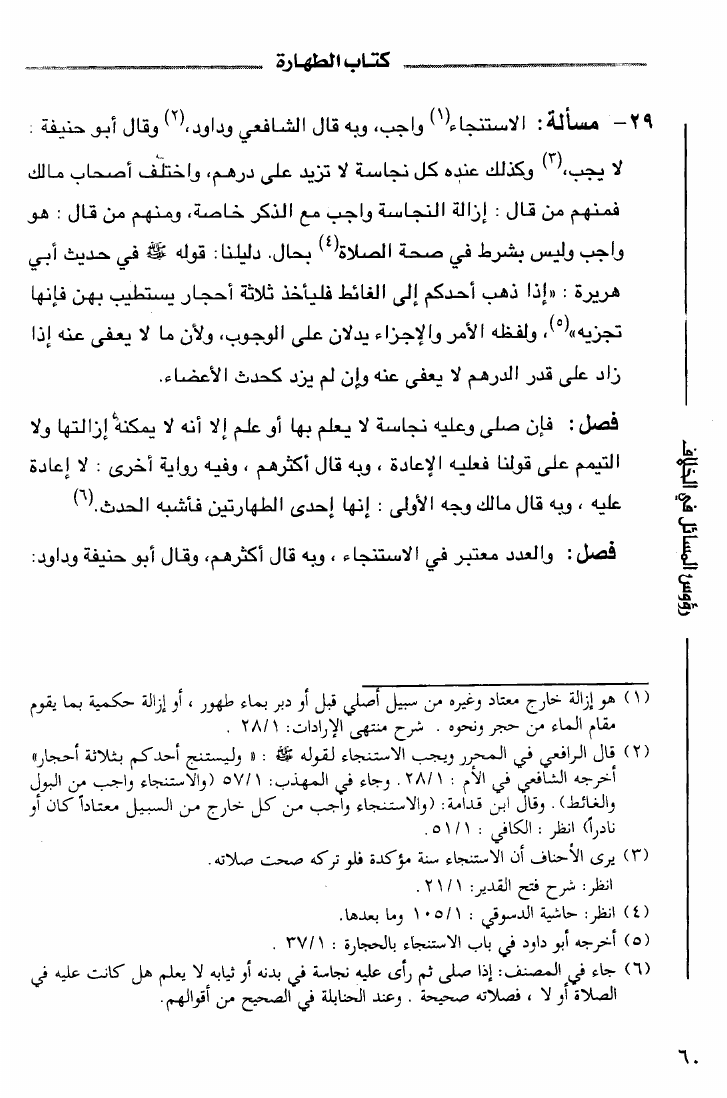 كتاب الطهارة
٢٩- مسألة: الاستنجاء(١) واجب، وبه قال الشافعي وداود،(٢) وقال أبو حنيفة :
لا يجب،(٣) وكذلك عنده كل نجاسة لا تزيد على درهم، واختلف أصحاب مالك
فمنهم من قال : إزالة النجاسة واجب مع الذكر خاصة، ومنهم من قال : هو
واجب وليس بشرط في صحة الصلاة(٤) بحال. دليلنا: قوله ﷺ في حديث أبي
هريرة : «إذا ذهب أحدكم إلى الغائط فليأخذ ثلاثة أحجار يستطيب بهن فإنها
تجزيه»(٥)، ولفظه الأمر والإجزاء يدلان على الوجوب، ولأن ما لا يعفى عنه إذا
زاد على قدر الدرهم لا يعفى عنه وإن لم يزد كحدث الأعضاء.
فصل: فإن صلى وعليه نجاسة لا يعلم بها أو علم إلا أنه لا يمكنه إزالتها ولا
التيمم على قولنا فعليه الإعادة ، وبه قال أكثرهم ، وفيه رواية أخرى : لا إعادة
عليه ، وبه قال مالك وجه الأولى : إنها إحدى الطهارتين فأشبه الحدث.(٦)
فصل: والعدد معتبر في الاستنجاء ، وبه قال أكثرهم، وقال أبو حنيفة وداود:
رؤوس المسائل في الخلاف
(١) هو إزالة خارج معتاد وغيره من سبيل أصلي قبل أو دبر بماء طهور ، أو إزالة حكمية بما يقوم
مقام الماء من حجر ونحوه . شرح منتهى الإرادات: ٢٨/١ .
(٢) قال الرافعي في المحرر ويجب الاستنجاء لقوله ﷺ : « وليستنج أحدكم بثلاثة أحجار»
أخرجه الشافعي في الأم : ٢٨/١. وجاء في المهذب: ٥٧/١ (والاستنجاء واجب من البول
والغائط). وقال ابن قدامة: (والاستنجاء واجب من كل خارج من السبيل معتاداً كان أو
نادراً) انظر : الكافي : ٥١/١.
(٣) يرى الأحناف أن الاستنجاء سنة مؤكدة فلو تركه صحت صلاته.
انظر: شرح فتح القدير: ٢١/١.
(٤) انظر: حاشية الدسوقي : ١٠٥/١ وما بعدها.
(٥) أخرجه أبو داود في باب الاستنجاء بالحجارة : ٣٧/١ .
(٦) جاء في المصنف: إذا صلى ثم رأى عليه نجاسة في بدنه أو ثيابه لا يعلم هل كانت عليه في
الصلاة أو لا ، فصلاته صحيحة . وعند الحنابلة في الصحيح من أقوالهم.
٦٠